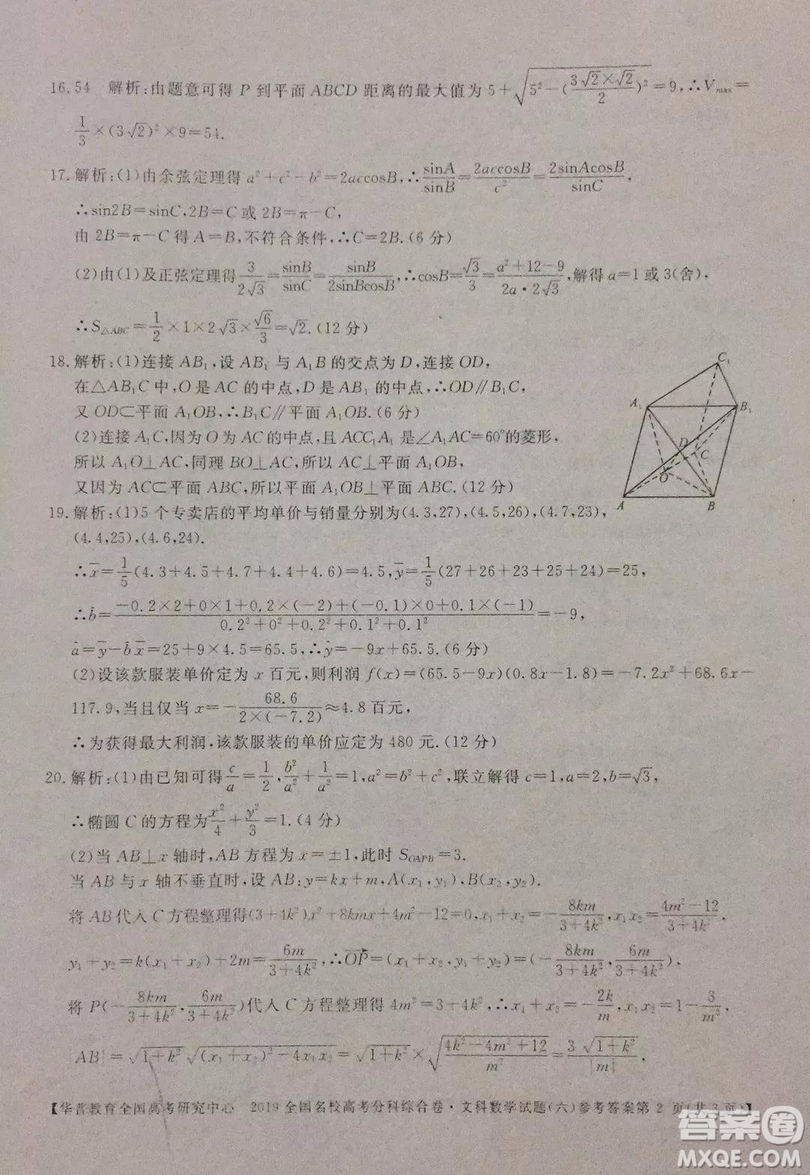 16.54 解析:由题意可得 P 到平面 ABCD 距离的最大值为 5+√(5²-(3√2×√2/2)²)=9,∴Vmax=
1/3×(3√2)²×9=54.
17.解析:(1)由余弦定理得 a²+c²-b²=2accosB,∴sinA/sinB=2accosB/c²=2sinAcosB/sinC,
∴sin2B=sinC,2B=C 或 2B=π-C,
由 2B=π-C 得 A=B,不符合条件,∴C=2B.(6 分)
(2)由(1)及正弦定理得3/2√3=sinB/sinC=sinB/2sinBcosB,∴cosB=√3/3=(a²+12-9)/(2a·2√3),解得 a=1 或 3(舍),
∴S△ABC=1/2×1×2√3×√6/3=√2.(12 分)
18.解析:(1)连接 AB₁,设 AB₁ 与 A₁B 的交点为 D,连接 OD,
在△AB₁C 中,O 是 AC 的中点,D 是 AB₁ 的中点,∴OD∥B₁C,
又 OD⊂平面 A₁OB,∴B₁C∥平面 A₁OB.(6 分)
(2)连接 A₁C,因为 O 为 AC 的中点,且 ACC₁A₁ 是∠A₁AC=60°的菱形,
所以 A₁O⊥AC,同理 BO⊥AC,所以 AC⊥平面 A₁OB,
又因为 AC⊂平面 ABC,所以平面 A₁OB⊥平面 ABC.(12 分)
C₁
A₁
B₁
D
C
O
A
B
19.解析:(1)5 个专卖店的平均单价与销量分别为(4.3,27),(4.5,26),(4.7,23),
(4.4,25),(4.6,24).
∴x̄=1/5(4.3+4.5+4.7+4.4+4.6)=4.5,ȳ=1/5(27+26+23+25+24)=25,
∴b̂=(-0.2×2+0×1+0.2×(-2)+(-0.1)×0+0.1×(-1))/(0.2²+0²+0.2²+0.1²+0.1²)=-9,
â=ȳ-b̂x̄=25+9×4.5=65.5,∴ŷ=-9x+65.5.(6 分)
(2)设该款服装单价定为 x 百元,则利润 f(x)=(65.5-9x)(0.8x-1.8)=-7.2x²+68.6x-
117.9,当且仅当 x=-68.6/(2×(-7.2))≈4.8 百元,
∴为获得最大利润,该款服装的单价应定为 480 元.(12 分)
20.解析:(1)由已知可得c/a=1/2,b²/a²+1/a²=1,a²=b²+c²,联立解得 c=1,a=2,b=√3,
∴椭圆 C 的方程为x²/4+y²/3=1.(4 分)
(2)当 AB⊥x 轴时,AB 方程为 x=±1,此时 S_OAPB=3.
当 AB 与 x 轴不垂直时,设 AB:y=kx+m,A(x₁,y₁),B(x₂,y₂),
将 AB 代入 C 方程整理得(3+4k²)x²+8kmx+4m²-12=0,x₁+x₂=-8km/(3+4k²),x₁x₂=(4m²-12)/(3+4k²)
y₁+y₂=k(x₁+x₂)+2m=6m/(3+4k²),∴OP→=(x₁+x₂,y₁+y₂)=(-8km/(3+4k²),6m/(3+4k²)),
将 P(-8km/(3+4k²),6m/(3+4k²))代入 C 方程整理得 4m²=3+4k²,∴x₁+x₂=-2k/m,x₁x₂=1-3/m²,
|AB|=√(1+k²)√((x₁+x₂)²-4x₁x₂)=√(1+k²)×√((4k²-4m²+12)/m²)=3√(1+k²)/|m|
【华普教育全国高考研究中心 2019 全国名校高考分科综合卷·文科数学试题(六)参考答案第 2 页(共 3 页)】
答案圈
MXQE.COM